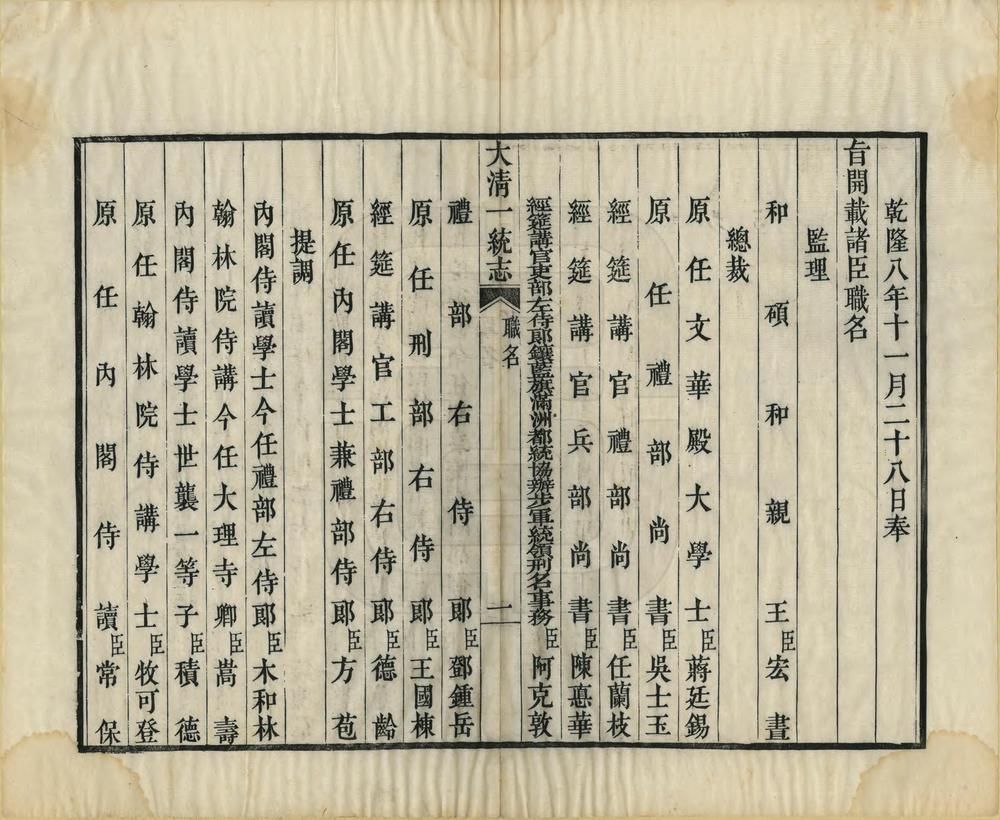 乾隆八年十一月二十八日奉
旨開載諸臣職名
監理
和碩和親王臣宏晝
總裁
原任文華殿大學士臣蔣廷錫
原任禮部尚書臣吳士玉
經筵講官禮部尚書臣任蘭枝
經筵講官兵部尚書臣陳悳華
經筵講官吏部左侍郎鑲藍旗滿洲都統協辦步軍統領刑名事務臣阿克敦
大淸一統志 職名 一
禮部右侍郎臣鄧鍾岳
原任刑部右侍郎臣王國棟
經筵講官工部右侍郎臣德齡
原任內閣學士兼禮部侍郎臣方苞
提調
內閣侍讀學士今任禮部左侍郎臣木和林
翰林院侍講今任大理寺卿臣嵩壽
內閣侍讀學士世襲一等子臣積德
原任翰林院侍講學士臣牧可登
原任內閣侍讀臣常保